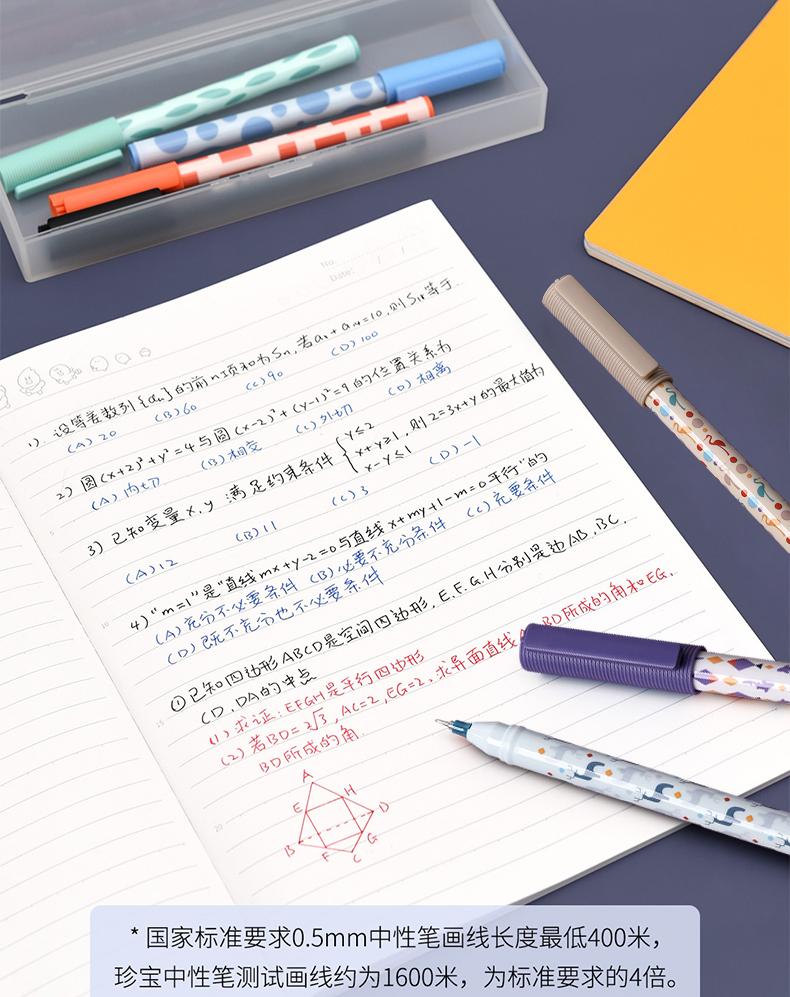 No.
Date:
1). 设等差数列{an}的前n项和为Sn,若
(A) 20 (B) 60 (C) 90 (D) 100
2) 圆(x+2)²+y²=4与圆(x-2)²+(y-1)²=9的位置关系为
(A) 内切 (B) 相交 (C) 外切 (D) 相离
3) 已知变量x,y 满足约束条件 { y≤2 x+y≥1 x-y≤1 ,则z=3x+y的最大值为
(A) 12 (B) 11 (C) 3 (D) -1
4) "m=1"是"直线mx+y-2=0与直线x+my+1-m=0平行"的
(A) 充分不必要条件 (B) 必要不充分条件 (C) 充要条件
(D) 既不充分也不必要条件
① 已知四边形ABCD是空间四边形,E.F.G.H分别是边AB.BC.
CD.DA的中点
(1) 求证:EFGH是平行四边形
(2) 若BD=2√3,AC=2,EG=2.求异面直线 BD所成的角和EG.
BD所成的角.
A
E H
D
B G
F C
* 国家标准要求0.5mm中性笔画线长度最低400米,
珍宝中性笔测试画线约为1600米,为标准要求的4倍。